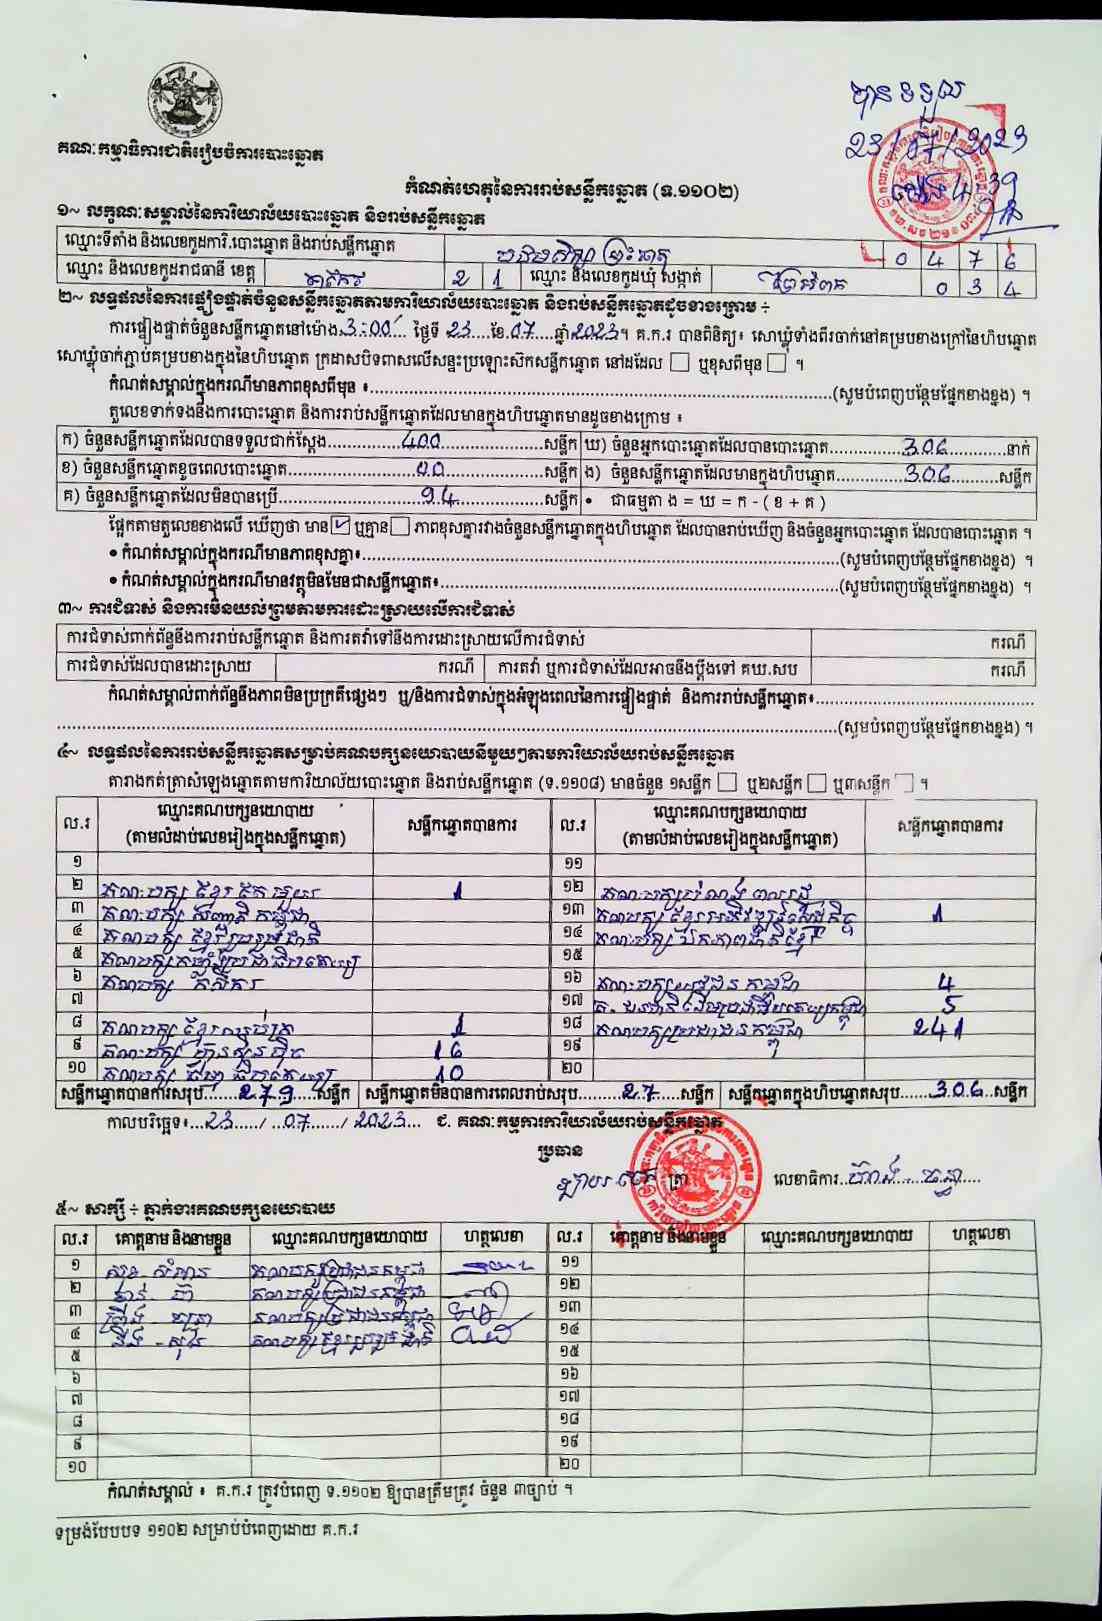 បានទទួល
23/07/2023
ម៉ោង 4:39
គណៈកម្មាធិការជាតិរៀបចំការបោះឆ្នោត
កំណត់ហេតុនៃការរាប់សន្លឹកឆ្នោត (ទ.១១០២)
១~ លក្ខណៈសម្គាល់នៃការិយាល័យបោះឆ្នោត និងរាប់សន្លឹកឆ្នោត
ឈ្មោះទីតាំង និងលេខកូដការិ.បោះឆ្នោត និងរាប់សន្លឹកឆ្នោត 0 4 7 6
ឈ្មោះ និងលេខកូដរាជធានី ខេត្ត តាកែវ 2 1 ឈ្មោះ និងលេខកូដឃុំ សង្កាត់ 0 3 4
២~ លទ្ធផលនៃការផ្ទៀងផ្ទាត់ចំនួនសន្លឹកឆ្នោតតាមការិយាល័យបោះឆ្នោត និងរាប់សន្លឹកឆ្នោតដូចខាងក្រោម ៖
ការផ្ទៀងផ្ទាត់ចំនួនសន្លឹកឆ្នោតនៅម៉ោង 3:00 ថ្ងៃទី 23 ខែ 07 ឆ្នាំ 2023 ។ គ.ក.រ បានពិនិត្យ៖ សោឃ្លុំទាំងពីរចាក់នៅគម្របខាងក្រៅនៃហិបឆ្នោត
សោឃ្លុំចាក់ភ្ជាប់គម្របខាងក្នុងនៃហិបឆ្នោត ក្រដាសបិទពាសលើសន្ទះប្រឡោះស៊កសន្លឹកឆ្នោត នៅដដែល ☐ ឬខុសពីមុន ☐ ។
កំណត់សម្គាល់ក្នុងករណីមានភាពខុសពីមុន ៖ (សូមបំពេញបន្ថែមផ្នែកខាងខ្នង) ។
តួលេខទាក់ទងនឹងការបោះឆ្នោត និងការរាប់សន្លឹកឆ្នោតដែលមានក្នុងហិបឆ្នោតមានដូចខាងក្រោម ៖
ក) ចំនួនសន្លឹកឆ្នោតដែលបានទទួលជាក់ស្តែង 400 សន្លឹក ឃ) ចំនួនអ្នកបោះឆ្នោតដែលបានបោះឆ្នោត 306 នាក់
ខ) ចំនួនសន្លឹកឆ្នោតខូចពេលបោះឆ្នោត 00 សន្លឹក ង) ចំនួនសន្លឹកឆ្នោតដែលមានក្នុងហិបឆ្នោត 306 សន្លឹក
គ) ចំនួនសន្លឹកឆ្នោតដែលមិនបានប្រើ 94 សន្លឹក • ជាធម្មតា ង = ឃ = ក - ( ខ + គ )
ផ្អែកតាមតួលេខខាងលើ ឃើញថា មាន ☑ ឬគ្មាន ☐ ភាពខុសគ្នារវាងចំនួនសន្លឹកឆ្នោតក្នុងហិបឆ្នោត ដែលបានរាប់ឃើញ និងចំនួនអ្នកបោះឆ្នោត ដែលបានបោះឆ្នោត ។
• កំណត់សម្គាល់ក្នុងករណីមានភាពខុសគ្នា៖ (សូមបំពេញបន្ថែមផ្នែកខាងខ្នង) ។
• កំណត់សម្គាល់ក្នុងករណីមានវត្ថុមិនមែនជាសន្លឹកឆ្នោត៖ (សូមបំពេញបន្ថែមផ្នែកខាងខ្នង) ។
៣~ ការជំទាស់ និងការមិនយល់ព្រមតាមការដោះស្រាយលើការជំទាស់
ការជំទាស់ពាក់ព័ន្ធនឹងការរាប់សន្លឹកឆ្នោត និងការតវ៉ាទៅនឹងការដោះស្រាយលើការជំទាស់ ករណី
ការជំទាស់ដែលបានដោះស្រាយ ករណី ការតវ៉ា ឬការជំទាស់ដែលអាចនឹងប្តឹងទៅ គឃ.សប ករណី
កំណត់សម្គាល់ពាក់ព័ន្ធនឹងភាពមិនប្រក្រតីផ្សេងៗ ឬ/និងការជំទាស់ក្នុងអំឡុងពេលនៃការផ្ទៀងផ្ទាត់ និងការរាប់សន្លឹកឆ្នោត៖
(សូមបំពេញបន្ថែមផ្នែកខាងខ្នង) ។
៤~ លទ្ធផលនៃការរាប់សន្លឹកឆ្នោតសម្រាប់គណបក្សនយោបាយនីមួយៗតាមការិយាល័យរាប់សន្លឹកឆ្នោត
តារាងកត់ត្រាសំឡេងឆ្នោតតាមការិយាល័យបោះឆ្នោត និងរាប់សន្លឹកឆ្នោត (ទ.១១០៨) មានចំនួន ១សន្លឹក ☐ ឬ២សន្លឹក ☐ ឬ៣សន្លឹក ☐ ។
ល.រ ឈ្មោះគណបក្សនយោបាយ (តាមលំដាប់លេខរៀងក្នុងសន្លឹកឆ្នោត) សន្លឹកឆ្នោតបានការ ល.រ ឈ្មោះគណបក្សនយោបាយ (តាមលំដាប់លេខរៀងក្នុងសន្លឹកឆ្នោត) សន្លឹកឆ្នោតបានការ
១ ១១
២ គណបក្ស ខ្មែរ តែមួយ 1 ១២
៣ គណបក្ស កម្ពុជា ១៣ គណបក្ស ខ្មែរអភិវឌ្ឍន៍សេដ្ឋកិច្ច 1
៤ គណបក្ស ខ្មែររួបរួមជាតិ ១៤ គណបក្ស ឯកភាពជាតិខ្មែរ
៥ គណបក្សកម្លាំងប្រជាធិបតេយ្យ ១៥
៦ គណបក្ស កសិករ ១៦ គណបក្ស កម្ពុជា 4
៧ ១៧ 5
៨ គណបក្ស ខ្មែរ 1 ១៨ គណបក្សប្រជាជនកម្ពុជា 241
៩ គណបក្ស ហ៊្វុនស៊ិនប៉ិច 16 ១៩
១០ គណបក្ស ធិបតេយ្យ 10 ២០
សន្លឹកឆ្នោតបានការសរុប 279 សន្លឹក សន្លឹកឆ្នោតមិនបានការពេលរាប់សរុប 27 សន្លឹក សន្លឹកឆ្នោតក្នុងហិបឆ្នោតសរុប 306 សន្លឹក
កាលបរិច្ឆេទ៖ 23 / 07 / 2023 ជ. គណៈកម្មការការិយាល័យរាប់សន្លឹកឆ្នោត
ប្រធាន
ត្រា លេខាធិការ
៥~ សាក្សី ៖ ភ្នាក់ងារគណបក្សនយោបាយ
ល.រ គោត្តនាម និងនាមខ្លួន ឈ្មោះគណបក្សនយោបាយ ហត្ថលេខា ល.រ គោត្តនាម និងនាមខ្លួន ឈ្មោះគណបក្សនយោបាយ ហត្ថលេខា
១ គណបក្សប្រជាជនកម្ពុជា ១១
២ គណបក្សប្រជាជនកម្ពុជា ១២
៣ គណបក្សប្រជាជនកម្ពុជា ១៣
៤ គណបក្សខ្មែររួបរួមជាតិ ១៤
៥ ១៥
៦ ១៦
៧ ១៧
៨ ១៨
៩ ១៩
១០ ២០
កំណត់សម្គាល់ ៖ គ.ក.រ ត្រូវបំពេញ ទ.១១០២ ឱ្យបានត្រឹមត្រូវ ចំនួន ៣ច្បាប់ ។
ទម្រង់បែបបទ ១១០២ សម្រាប់បំពេញដោយ គ.ក.រ